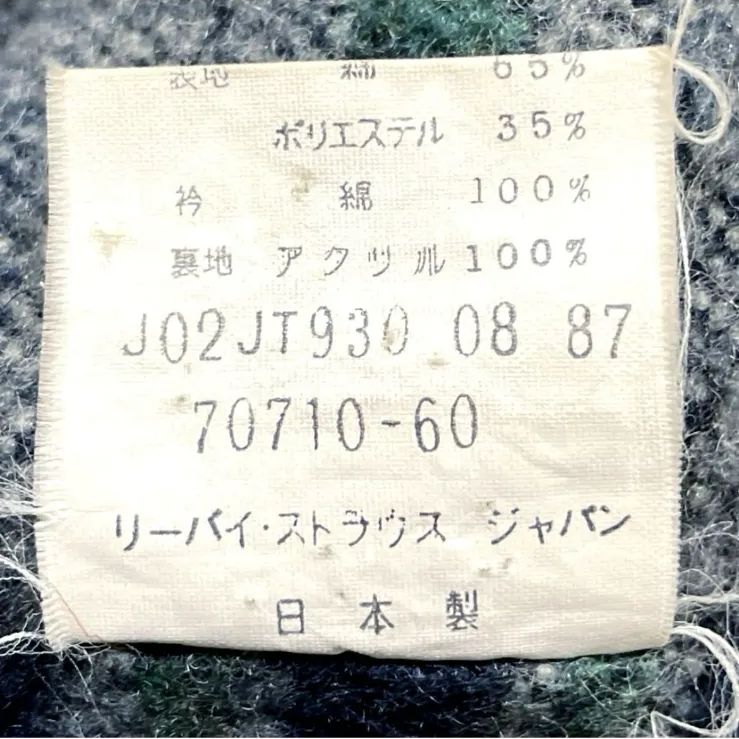 表地 綿 65%
ポリエステル 35%
衿 綿 100%
裏地 アクリル 100%
J02JT930 08 87
70710-60
リーバイ・ストラウス ジャパン
日本製